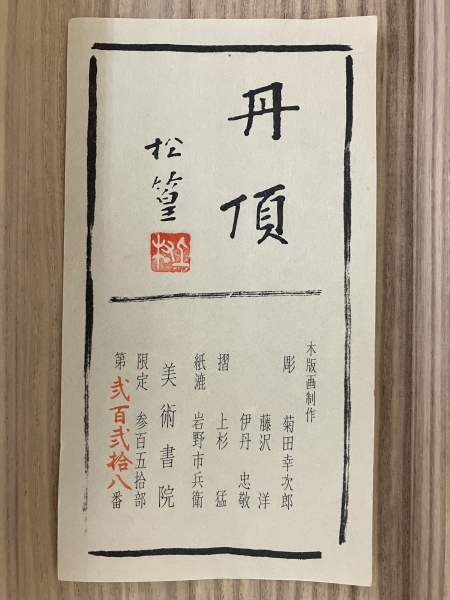 丹頂
松篁
木版画制作
彫 菊田幸次郎
藤沢 洋
伊丹 忠敬
摺 上杉 猛
紙漉 岩野市兵衛
美術書院
限定 参百五拾部
第弐百弐拾八番